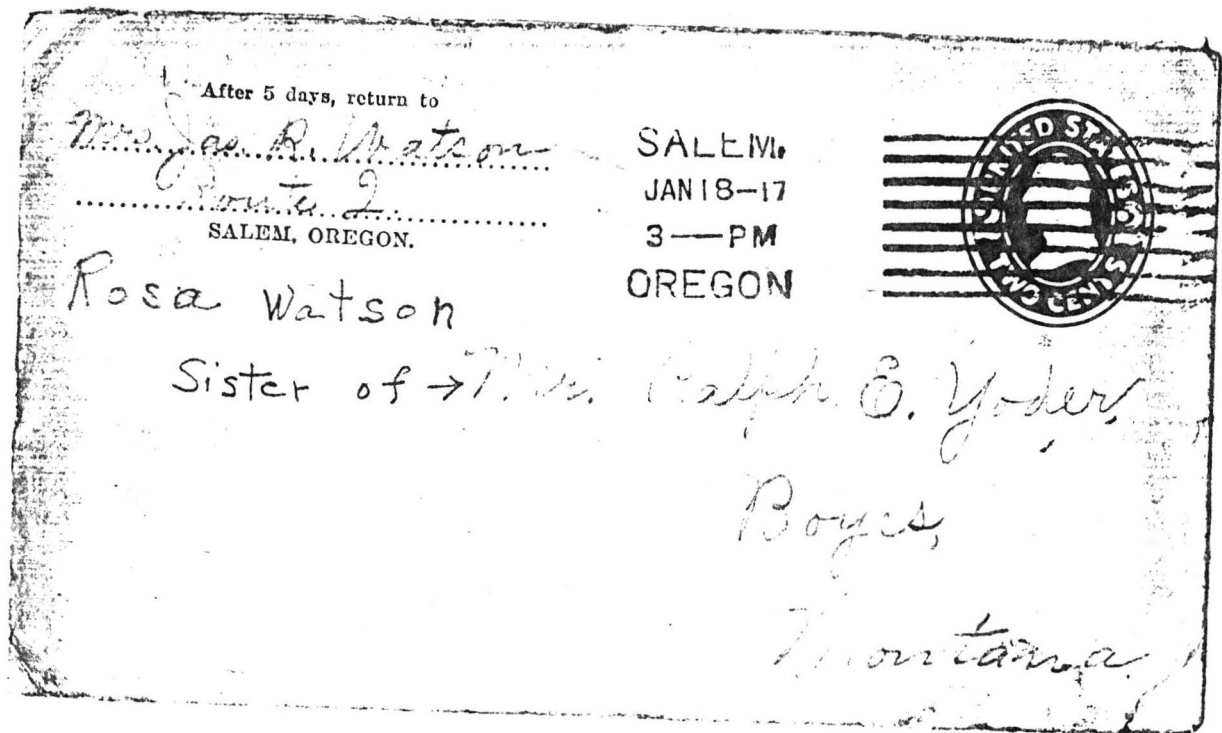 After 5 days, return to
Mrs. Jas. R. Watson
Route 2
SALEM, OREGON.
SALEM.
JAN 18-17
3—PM
OREGON
UNITED STATES
TWO CENTS
Rosa Watson
Sister of → Mr. Ralph E. Yoder,
Boyes,
Montana